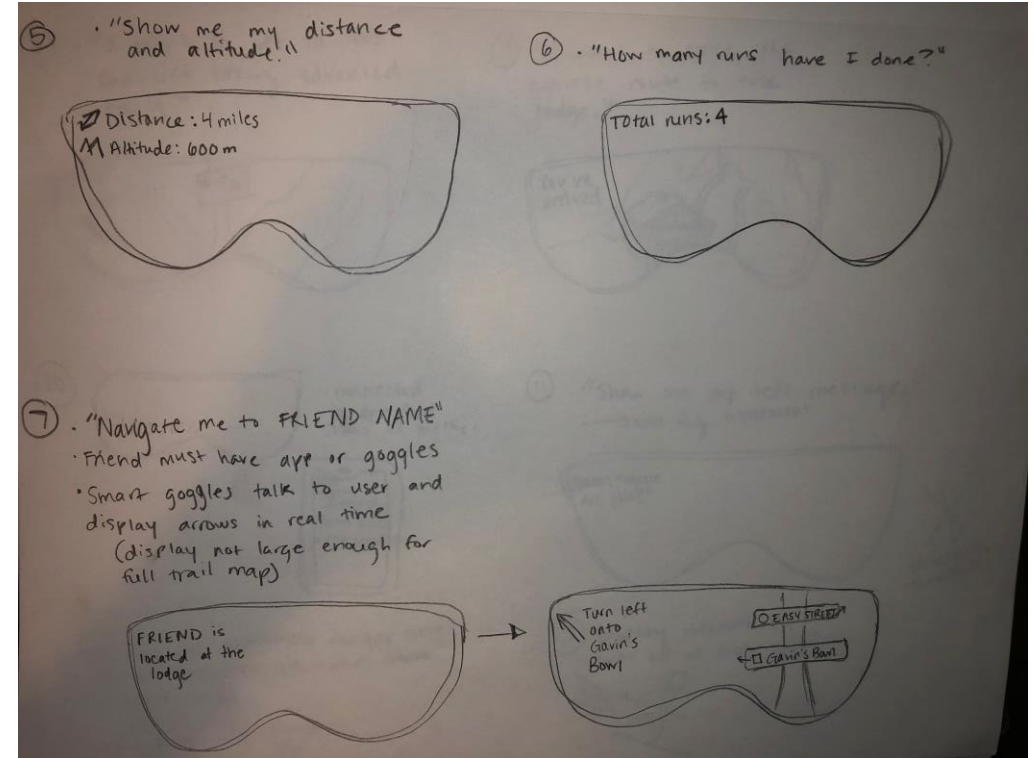 5 . "Show me my distance
and altitude."
Distance: 4 miles
Altitude: 600 m
6 . "How many runs have I done?"
Total runs: 4
7 . "Navigate me to FRIEND NAME"
· Friend must have app or goggles
· Smart goggles talk to user and
display arrows in real time
(display not large enough for
full trail map)
FRIEND is
located at the
lodge
Turn left
onto
Gavin's
Bowl
EASY STREET
Gavin's Bowl